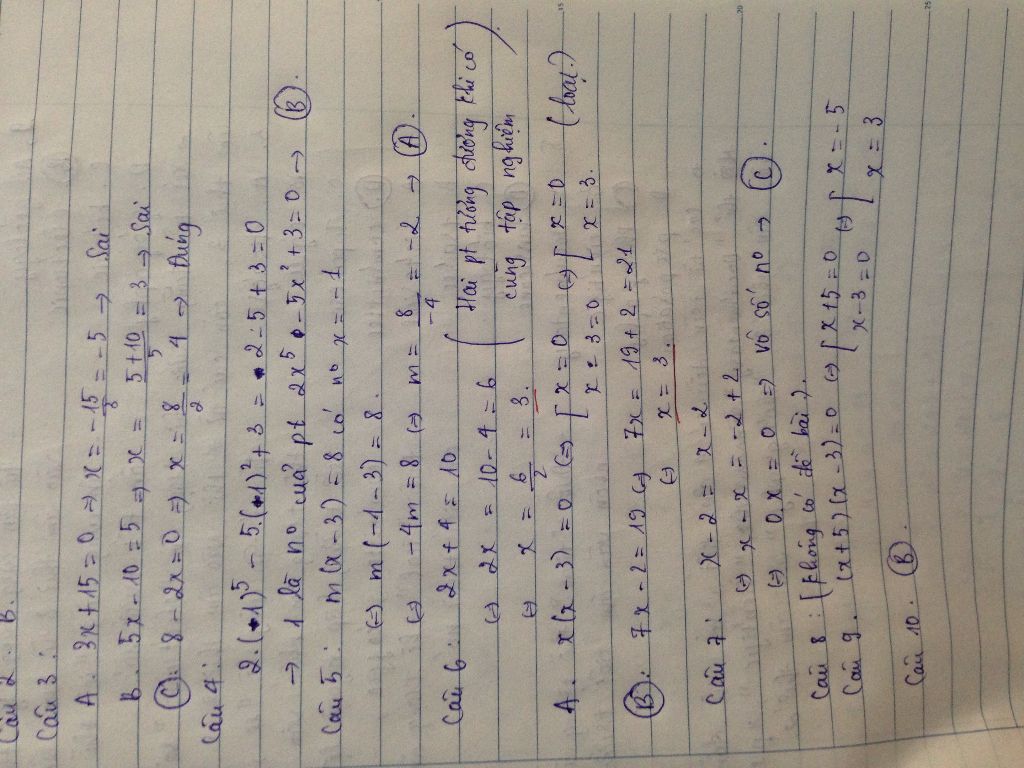 Câu 2: B.
Câu 3:
A. 3x + 15 = 0 => x = -15/3 = -5 → Sai
B. 5x - 10 = 5 => x = 5+10/5 = 3 → Sai
C: 8 - 2x = 0 => x = 8/2 = 4 → Đúng
Câu 4:
2.(1)^5 - 5.(1)^2 + 3 = 2 - 5 + 3 = 0
→ 1 là no của pt 2x^5 - 5x^2 + 3 = 0 → B.
Câu 5: m(x - 3) = 8 có no x = -1
(=) m(-1 - 3) = 8.
(=) -4m = 8 (=) m = 8/-4 = -2 → A.
Câu 6: 2x + 4 = 10
(=) 2x = 10 - 4 = 6 (Hai pt tương đương khi có
(=) x = 6/2 = 3. cùng tập nghiệm).
A. x(x - 3) = 0 (=) [ x = 0 (=) [ x = 0 (loại.)
x - 3 = 0 x = 3.
B: 7x - 2 = 19 (=) 7x = 19 + 2 = 21
(=) x = 3.
Câu 7: x - 2 = x - 2
(=) x - x = -2 + 2
(=) 0.x = 0 => vô số no → C.
Câu 8: [không có đề bài).
Câu 9. (x + 5)(x - 3) = 0 (=) [ x + 5 = 0 (=) [ x = -5
x - 3 = 0 x = 3
Câu 10. B.